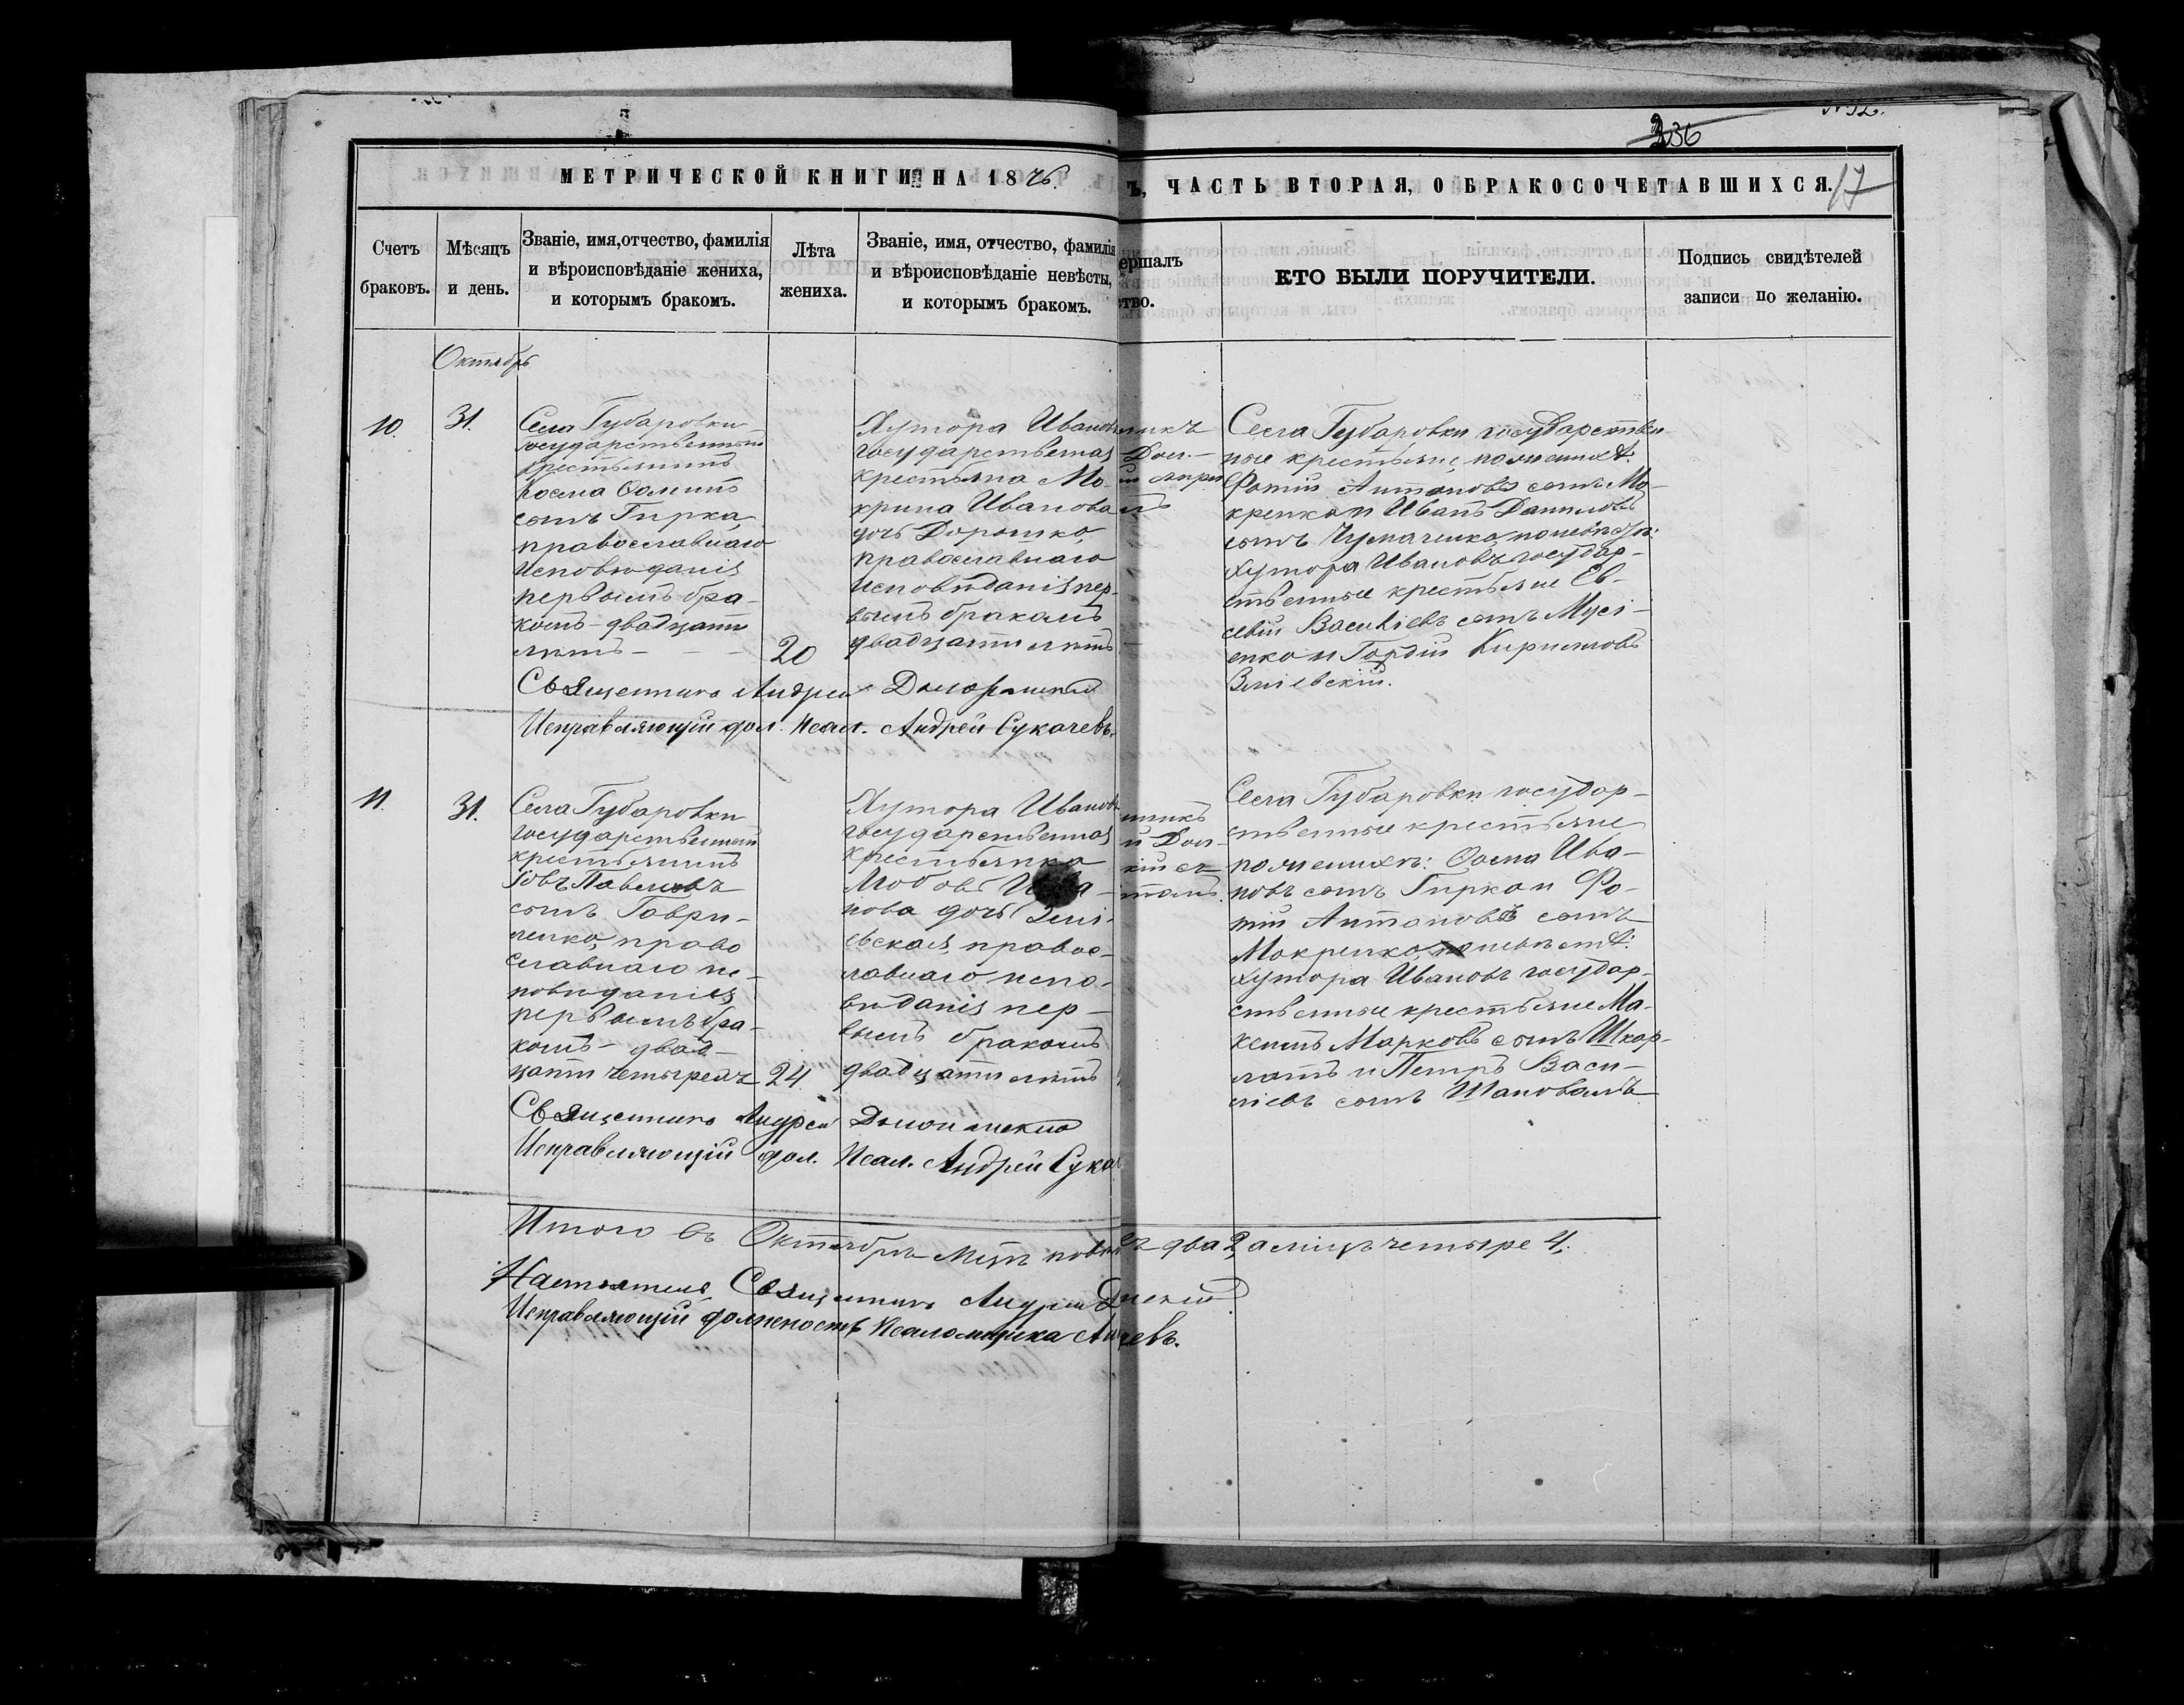 336
МЕТРИЧЕСКОЙ КНИГИ НА 1876.
Ъ, ЧАСТЬ ВТОРАЯ, О БРАКОСОЧЕТАВШИХСЯ. 17
Счетъ
браковъ.
Мѣсяцъ
и день.
Званіе, имя, отчество, фамилія
и вѣроисповѣданіе жениха,
и которымъ бракомъ.
Лѣта
жениха.
Званіе, имя, отчество, фамилія
и вѣроисповѣданіе невѣсты,
и которымъ бракомъ.
ершалъ
ство.
КТО БЫЛИ ПОРУЧИТЕЛИ.
Подпись свидѣтелей
записи по желанію.
Октябрь
10.
31.
Села Губаровки
государственный
крестьянинъ
Косма Ѳоминъ
сынъ Гирка,
православнаго
исповѣданія
первымъ бра-
комъ - двадцати
лѣтъ - - -
20
Хутора Иванов
государственная
крестьянка Мо-
крина Иванова
дочь Дорошко,
православнаго
исповѣданія пер-
вымъ бракомъ
двадцати лѣтъ
никъ
Села Губаровки государствен-
ные крестьяне по женихѣ:
Фотій Антоновъ сынъ Мо-
кренко и Иванъ Даниловъ
сынъ Чумаченко, по невѣстѣ:
хутора Ивановъ государ-
ственные крестьяне Ев-
севій Васильевъ сынъ Мусі-
енко и Гордій Кирилловъ
Зміевскій.
Священникъ Андрей
Исправляющій дол. Псал. Андрей Сукачевъ.
11.
31.
Села Губаровки
государственный
крестьянинъ
Іовъ Павловъ
сынъ Гаври-
ленко, право
славнаго ис-
повѣданія
первымъ бра-
комъ - двад-
цати четырехъ
24.
Хутора Иванов
государственная
крестьянка
Любовь Ива-
нова дочь Змі-
евская, правос-
лавнаго испо-
вѣданія пер-
вымъ бракомъ
двадцати лѣтъ
Села Губаровки государ-
ственные крестьяне
по женихѣ: Ѳома Ива-
новъ сынъ Гирка и Фо-
тій Антоновъ сынъ
Мокренко, по невѣстѣ:
хутора Ивановъ государ-
ственные крестьяне Ма-
ксимъ Марковъ сынъ Шкар-
латъ и Петръ Васи-
ліевъ сынъ Шаповалъ.
Священникъ Андрей
Исправляющій дол. Псал. Андрей Сука
Итого въ Октябрѣ мцѣ два 2, а лицъ четыре 4.
Настоятель Священникъ Андрей
Исправляющій должность Псаломщика Ан чевъ.